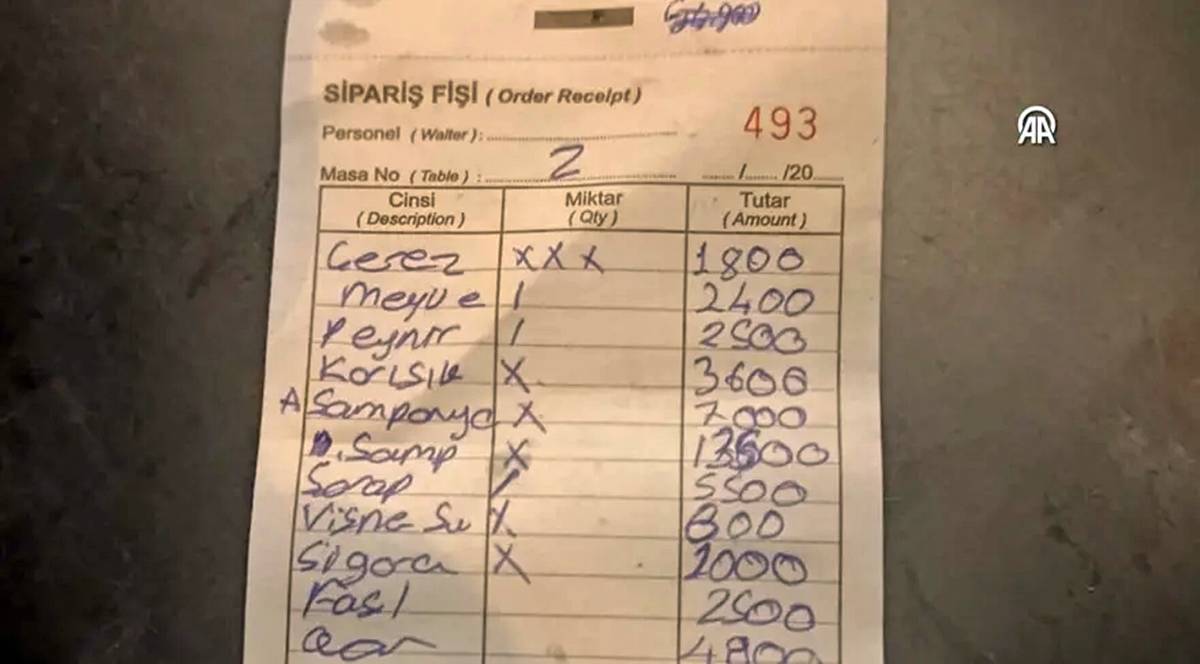 SİPARİŞ FİŞİ ( Order Receipt )
493
AA
Personel ( Waiter ) :
Masa No ( Table ) : 2 ...../...../20.....
Cinsi Miktar Tutar
( Description ) ( Qty ) ( Amount )
Cerez x x x 1800
meyve / 2400
Peynir / 2500
Karışık X 3600
A Sampanya X 7000
Samp X 13500
Sarap / 5500
Vişne Su X 800
Sigara X
Fasl 2500
4800